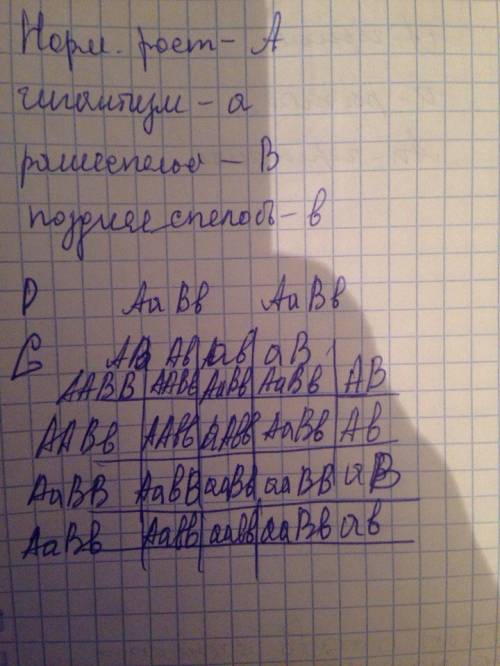 Норм. рост - А
гигантизм - а
раннеспелос - В
позднее спелось - в
Р АаВв АаВв
G АВ Ав ав аВ
ААВВ ААВв АаВв АаВв АВ
ААВв ААвв аАвв АаВв Ав
АаВВ АаВВ ааВв ааВВ аВ
АаВв Аавв аавв ааВв ав